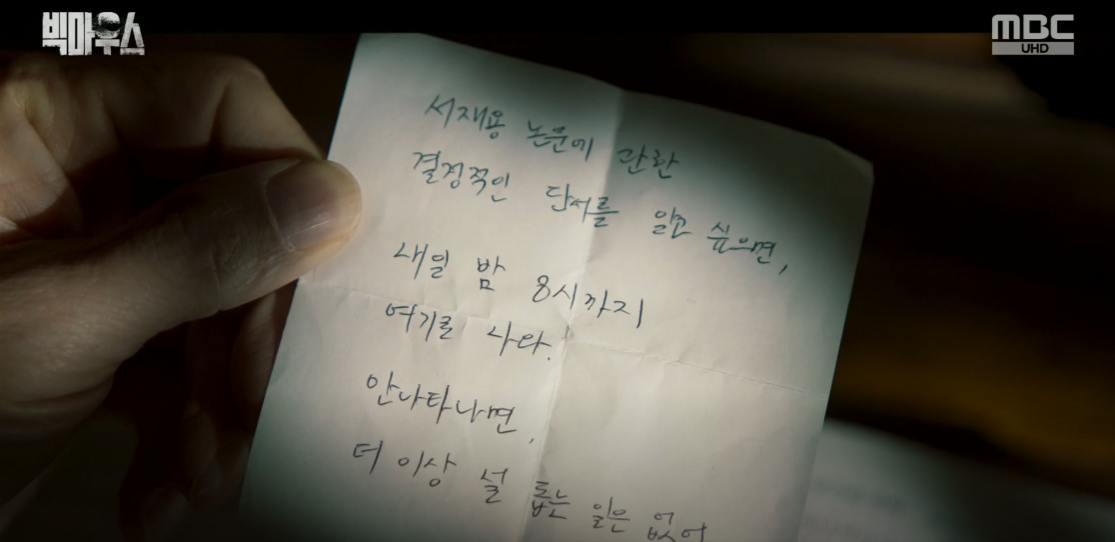 빅마우스
MBC
UHD
서재용 논문에 관한
결정적인 단서를 알고 싶으면,
내일 밤 8시까지
여기로 나와.
안나타나면,
더 이상 설 돕는 일은 없어